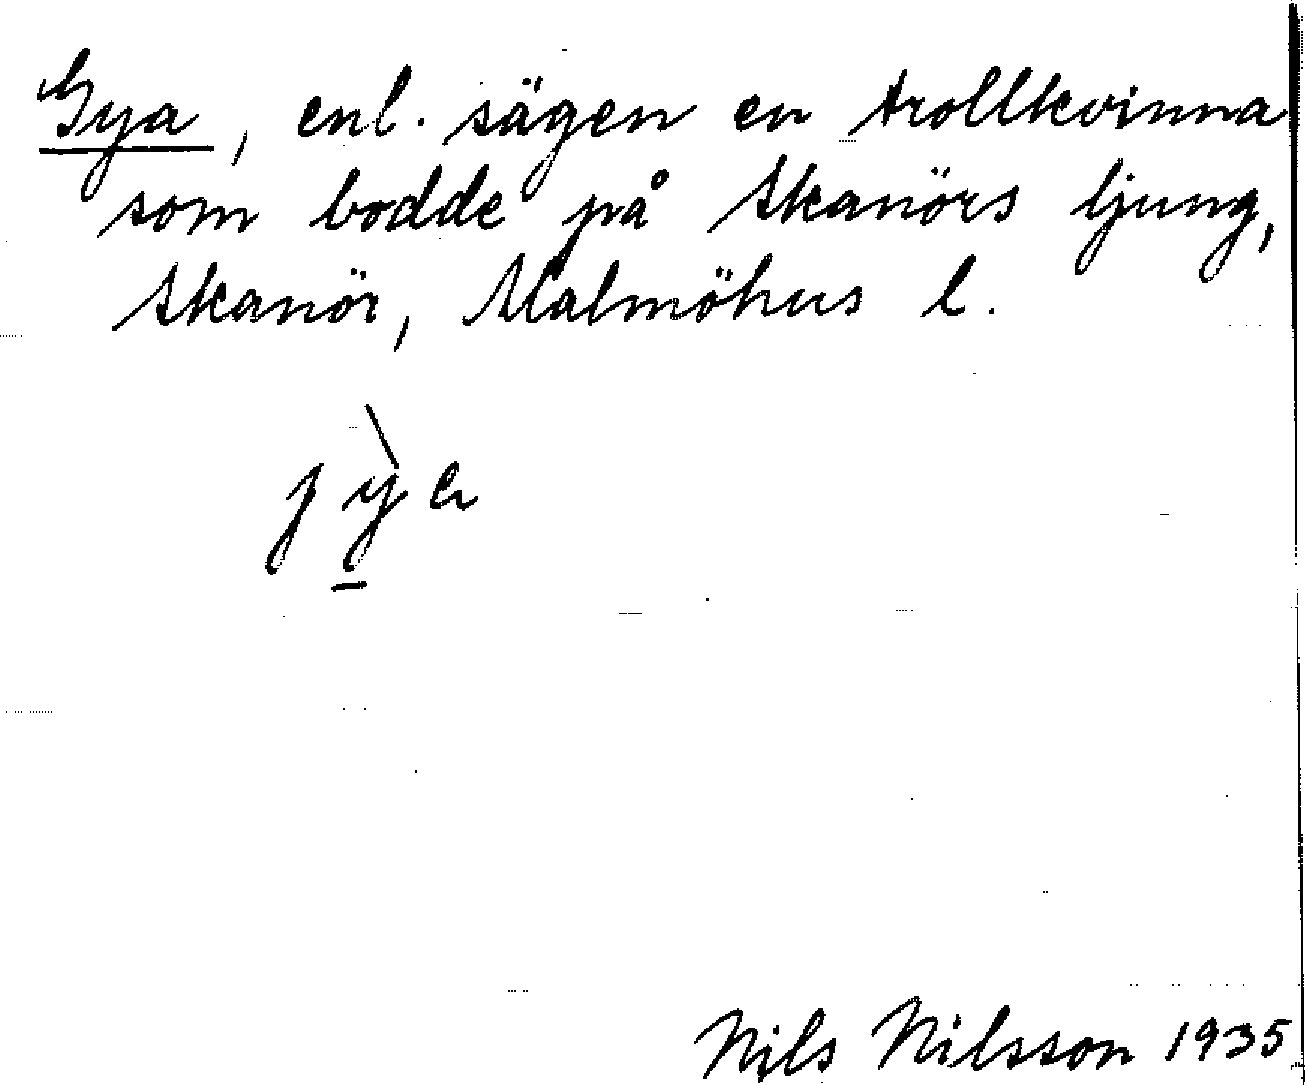 Gya, enl. sägen en trollkvinna
som bodde på Skanörs ljung,
Skanör, Malmöhus l.
Nils Nilsson 1935